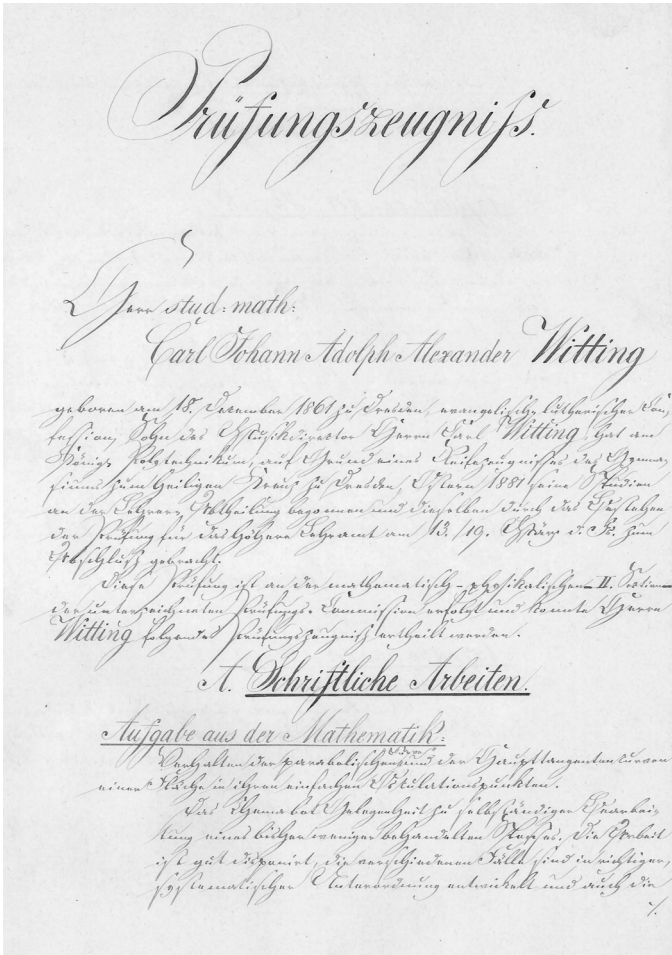 Prüfungszeugniss.
Herr stud: math:
Carl Johann Adolph Alexander Witting
geboren am 18. December 1861 zu Dresden, evangelisch-lutherischer Con-
fession, Sohn des Musikdirector Herrn Carl Witting, hat am
Königl. Polytechnikum, auf Grund eines Reifezeugnisses des Gymna-
siums zum heiligen Kreuz zu Dresden, Ostern 1881 seine Studien
an der Lehrer-Abtheilung begonnen und dieselben durch das Bestehen
der Prüfung für das höhere Lehramt am 13./19. März d. Js. zum
Abschluß gebracht.
Diese Prüfung ist an der mathematisch-physikalischen II. Section
der unterzeichneten Prüfungs-Commission erfolgt und konnte Herrn
Witting folgendes Prüfungszeugniß ertheilt werden.
A. Schriftliche Arbeiten.
Aufgabe aus der Mathematik:
Verhalten der parabolischen Curve und der Haupttangentencurven
einer Fläche in ihren einfachen Osculationspunkten.
Das Thema bot Gelegenheit zu selbständiger Bearbei-
tung eines bisher weniger behandelten Stoffes. Die Arbeit
ist gut disponirt, die verschiedenen Fälle sind in richtiger,
systematischer Unterordnung entwickelt und auch die
./.